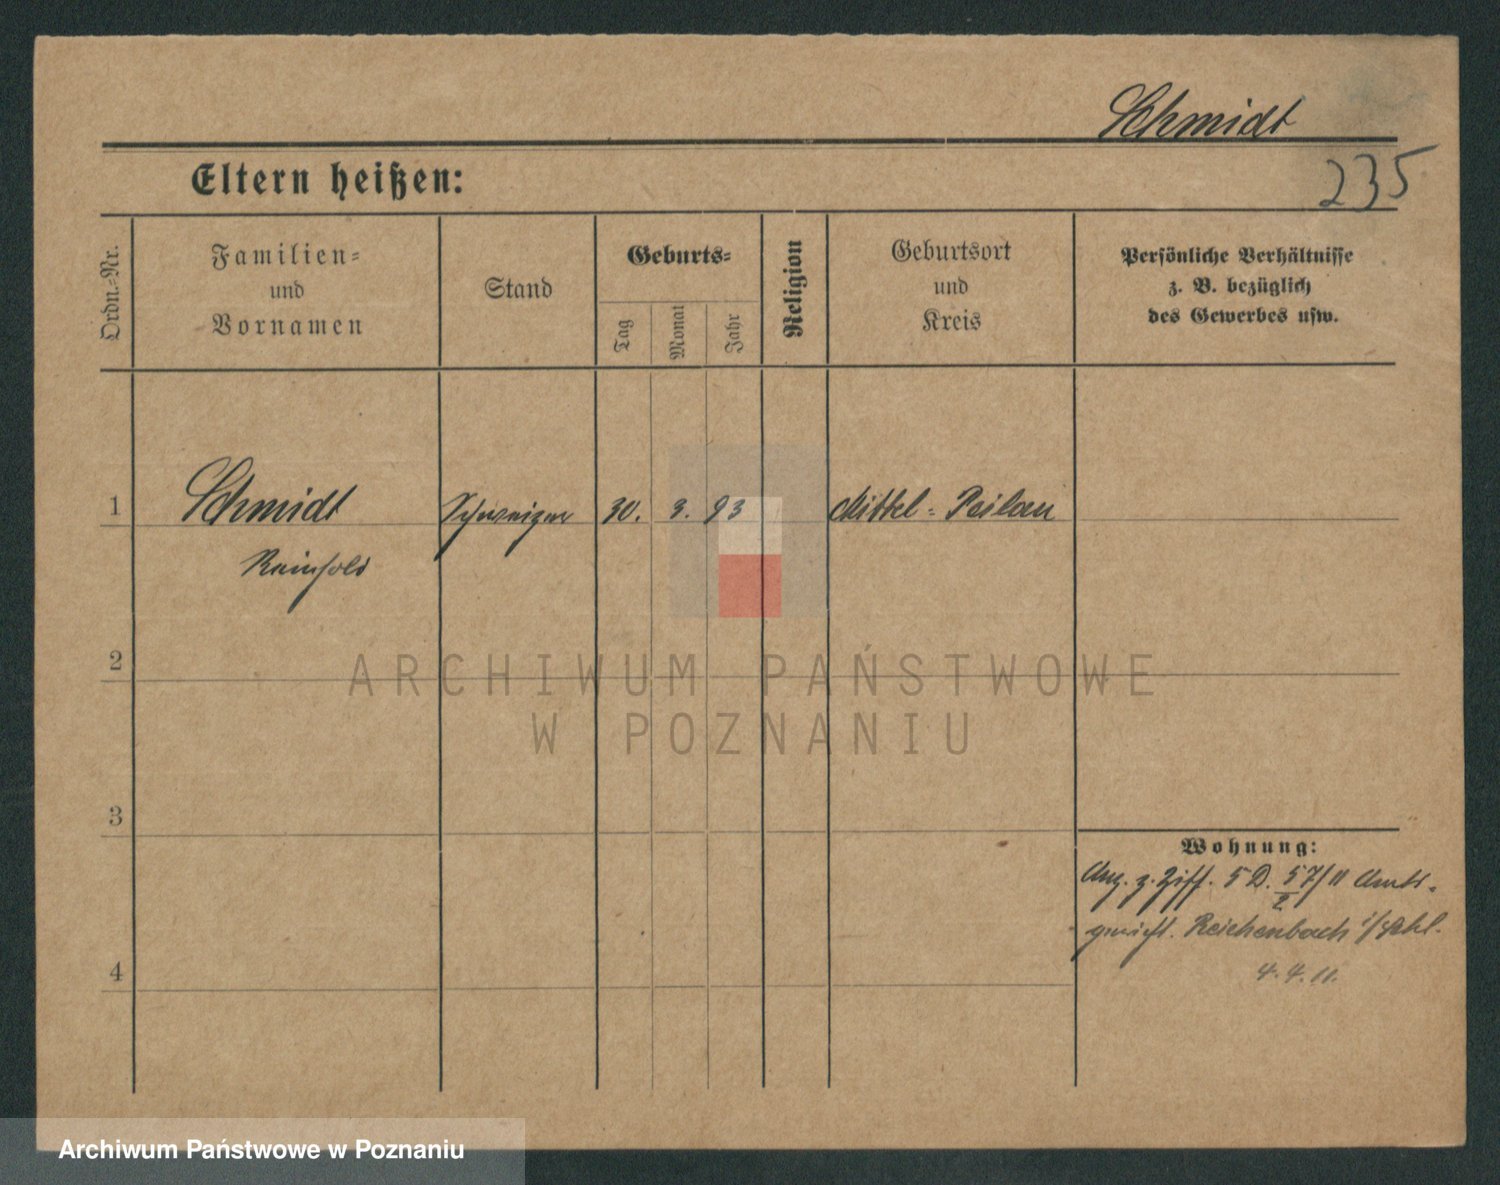 Schmidt
235
Eltern heißen:
Ordn.=Nr.
Familien=
und
Vornamen
Stand
Geburts=
Tag
Monat
Jahr
Religion
Geburtsort
und
Kreis
Persönliche Verhältnisse
z. B. bezüglich
des Gewerbes usw.
1
Schmidt
Schweizer
30.
3.
93
Mittel-Peilau
Reinhold
2
ARCHIWUM PAŃSTWOWE
W POZNANIU
3
Wohnung:
Anz. z. Ziff. 5 D. 57/11 Amts-
2
gericht. Reichenbach i/Schl.
4
4. 4. 11.
Archiwum Państwowe w Poznaniu